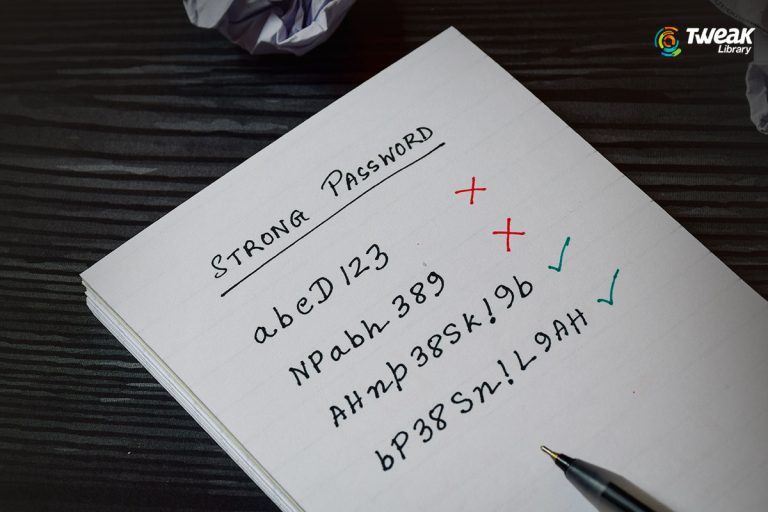 TWEAK
Library
STRONG PASSWORD
abcD123
NPabh389
AHnp38SK!9b
bP38Sn!L9AH